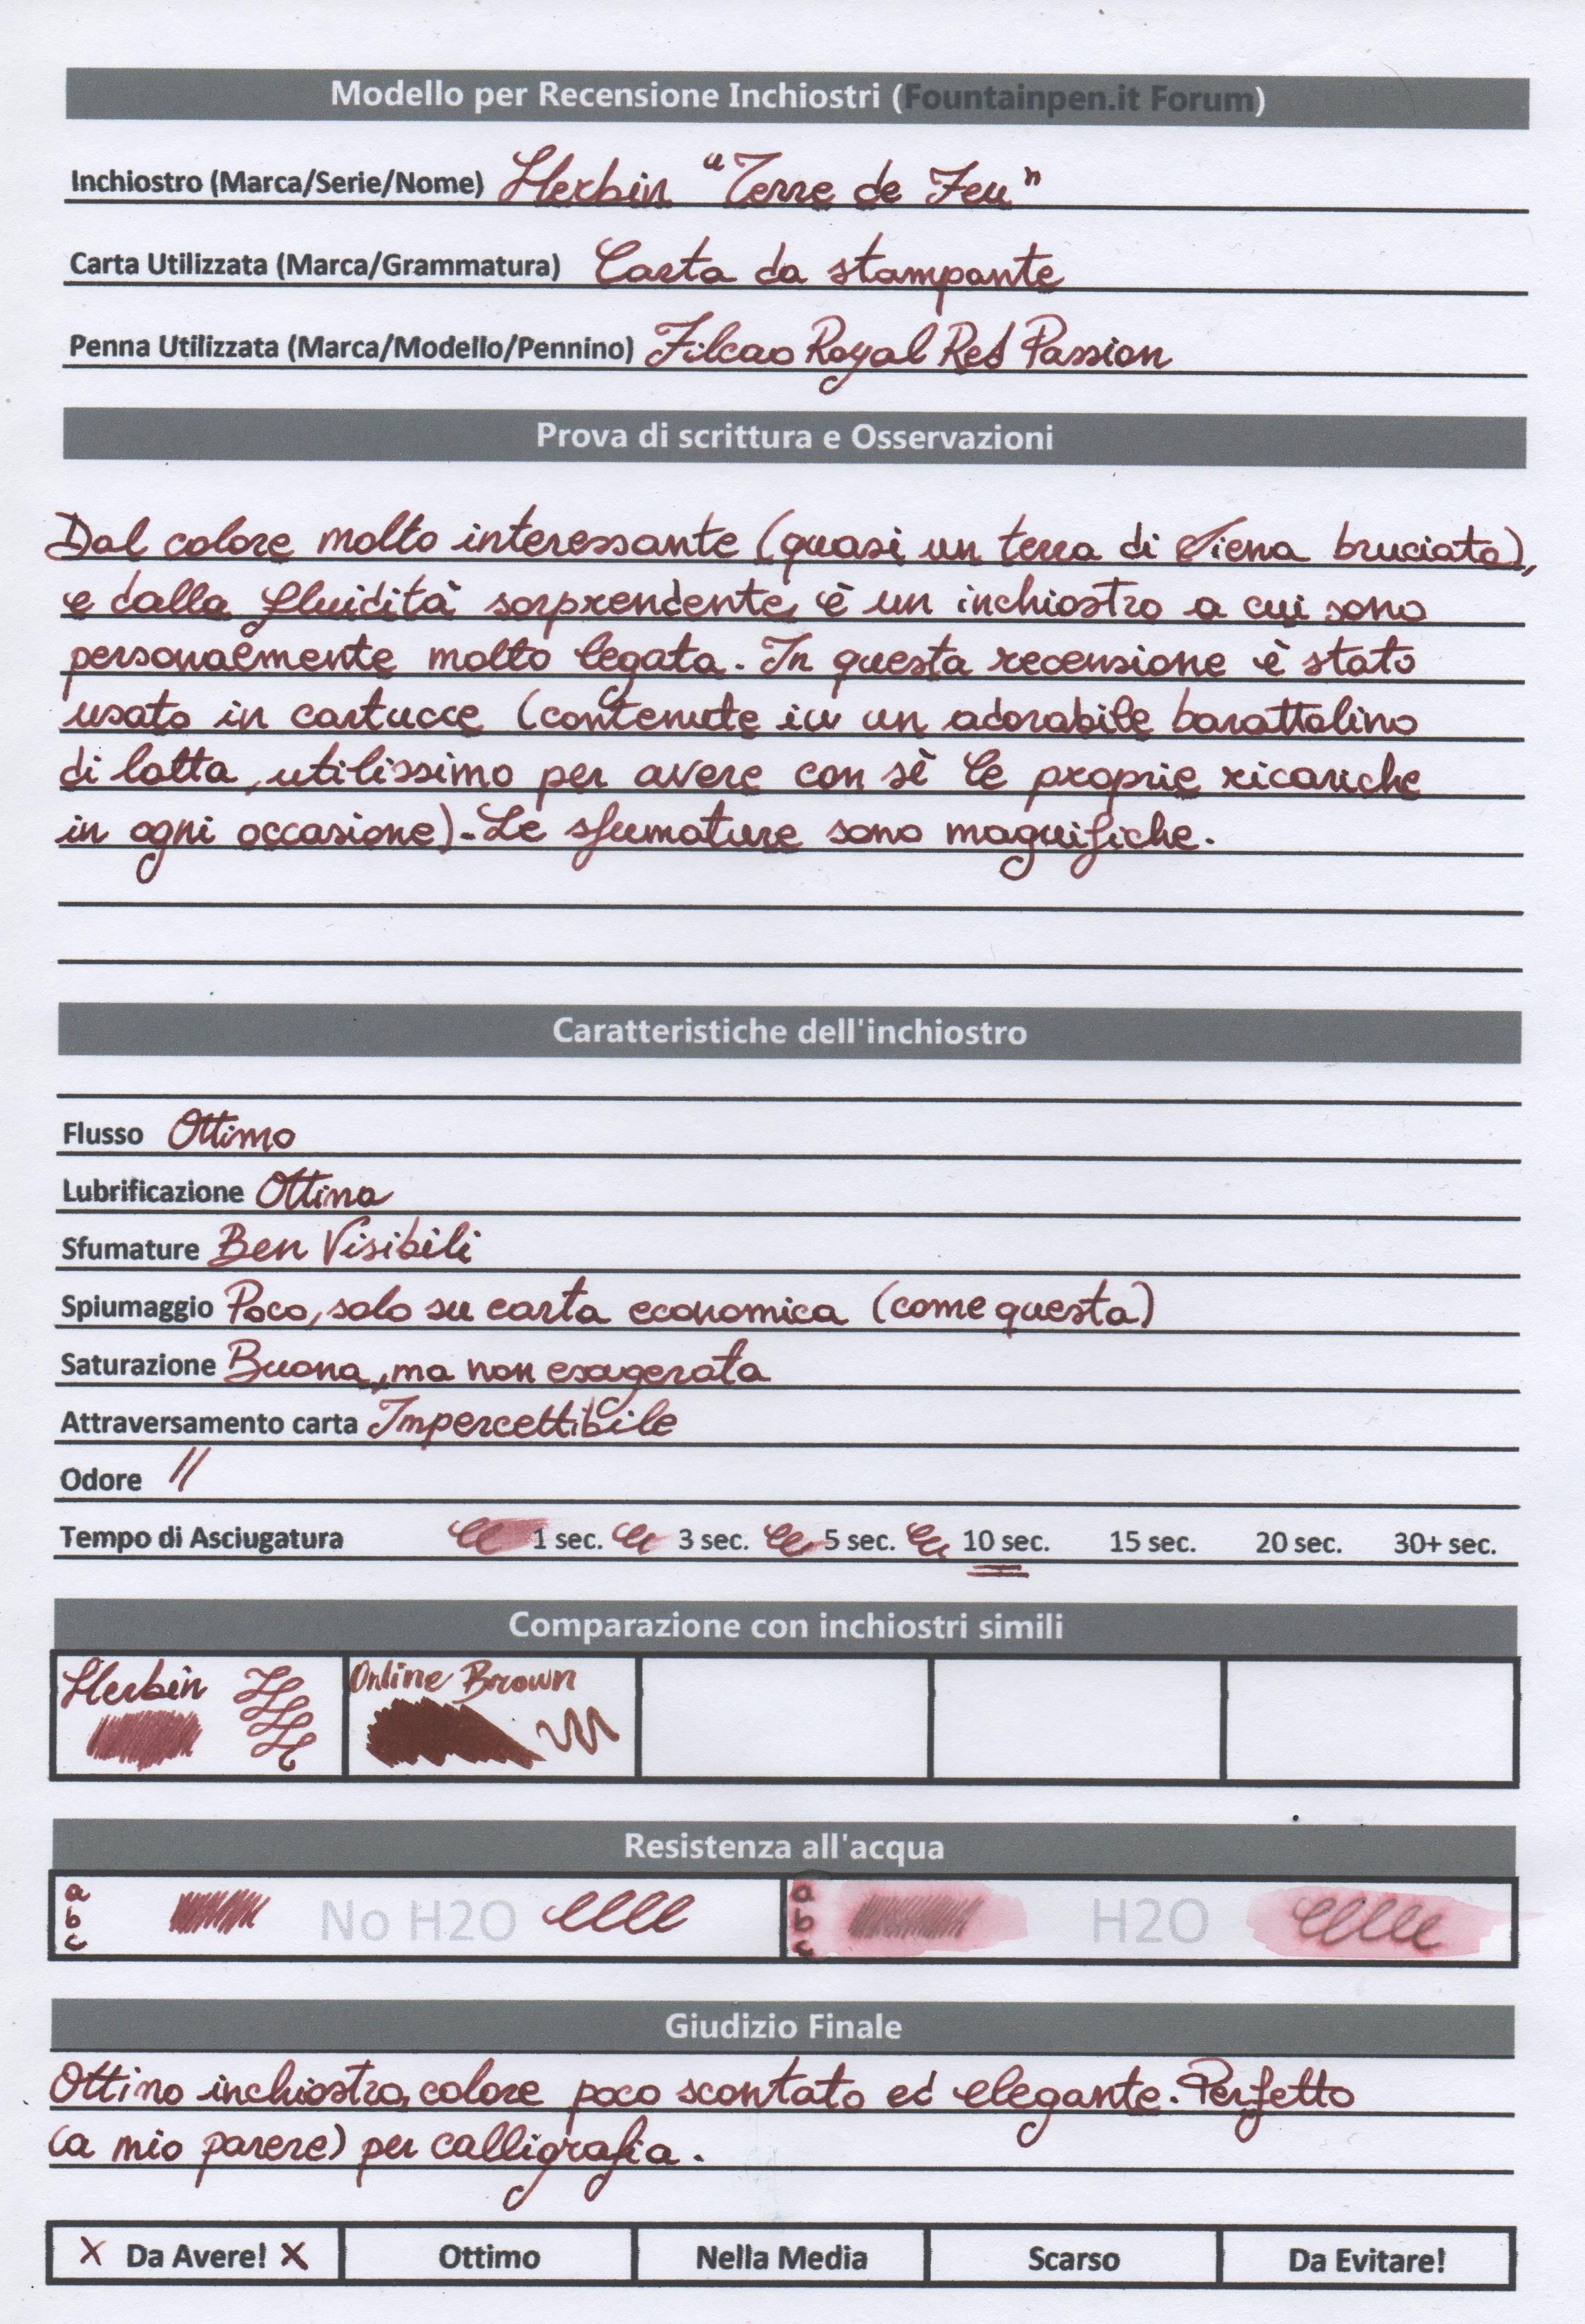 Modello per Recensione Inchiostri (Fountainpen.it Forum)
Inchiostro (Marca/Serie/Nome) Herbin "Terre de Feu"
Carta Utilizzata (Marca/Grammatura) Carta da stampante
Penna Utilizzata (Marca/Modello/Pennino) Filcao Royal Red Passion
Prova di scrittura e Osservazioni
Dal colore molto interessante (quasi un terra di Siena bruciata),
e dalla fluidità sorprendente, è un inchiostro a cui sono
personalmente molto legata. In questa recensione è stato
usato in cartucce (contenute in un adorabile barattolino
di latta, utilissimo per avere con sè le proprie ricariche
in ogni occasione). Le sfumature sono magnifiche.
Caratteristiche dell'inchiostro
Flusso Ottimo
Lubrificazione Ottima
Sfumature Ben Visibili
Spiumaggio Poco, solo su carta economica (come questa)
Saturazione Buona, ma non esagerata
Attraversamento carta Impercettibile
Odore //
Tempo di Asciugatura 1 sec. 3 sec. 5 sec. 10 sec. 15 sec. 20 sec. 30+ sec.
Comparazione con inchiostri simili
Herbin Online Brown
Resistenza all'acqua
a a
b No H2O b H2O
c c
Giudizio Finale
Ottimo inchiostro, colore poco scontato ed elegante. Perfetto
(a mio parere) per calligrafia.
X Da Avere! X Ottimo Nella Media Scarso Da Evitare!